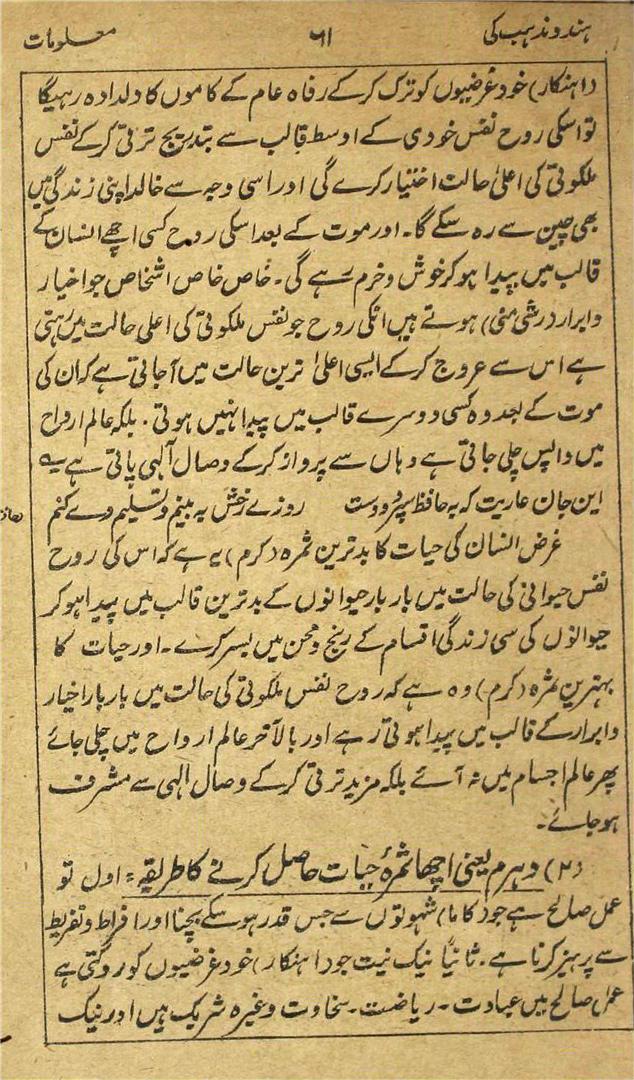 ہندو مذہب کی ۶۱ معلومات
(اہنکار) خود غرضیوں کو ترک کرکے رفاہ عام کے کاموں کا دلدادہ رہیگا
تو اسکی روح نفس خودی کے اوسط قالب سے بتدریج ترقی کرکے نفس
ملکوتی کی اعلیٰ حالت اختیار کرے گی اور اسی وجہ سے خالد اپنی زندگی میں
بھی چین سے رہ سکے گا۔ اور موت کے بعد اسکی روح کسی اچھے انسان کے
قالب میں پیدا ہوکر خوش و خرم رہے گی۔ خاص خاص اشخاص جو اخیار
و ابرار (رشی منی) ہوتے ہیں انکی روح جو نفس ملکوتی کی اعلی حالت میں رہتی
ہے اس سے عروج کرکے ایسی اعلیٰ ترین حالت میں آجاتی ہے کہ ان کی
موت کے بعد وہ کسی دوسرے قالب میں پیدا نہیں ہوتی۔ بلکہ عالم ارواح
میں واپس چلی جاتی ہے وہاں سے پرواز کرکے وصال آلہی پاتی ہے ؎
این جان عاریت کہ بہ حافظ سپرد دوست روزے رخش بہ بینم و تسلیم وے کنم
حافظ
غرض انسان کی حیات کا بدترین ثمرہ (کرم) یہ ہے کہ اس کی روح
نفس حیوانی کی حالت میں بار بار حیوانوں کے بدترین قالب میں پیدا ہوکر
حیوانوں کی سی زندگی اقسام کے رنج و محن میں بسر کرے۔ اور حیات کا
بہترین ثمرہ (کرم) وہ ہے کہ روح نفس ملکوتی کی حالت میں بار بار اخیار
و ابرار کے قالب میں پیدا ہوتی رہے اور بالآخر عالم ارواح میں چلی جائے
پھر عالم اجسام میں نہ آئے بلکہ مزید ترقی کرکے وصال الٰہی سے مشرف
ہو جائے۔
(۲) دہرم یعنی اچھا ثمرۂ حیات حاصل کرنے کا طریقہ = اول تو
عمل صالح ہے جو (کاما) شہوتوں سے جس قدر ہوسکے بچنا اور افراط و تفریط
سے پرہیز کرنا ہے۔ ثانیاً نیک نیت جو (اہنکار) خود غرضیوں کو روکتی ہے
عمل صالح میں عبادت۔ ریاضت۔ سخاوت وغیرہ شریک ہیں اور نیک